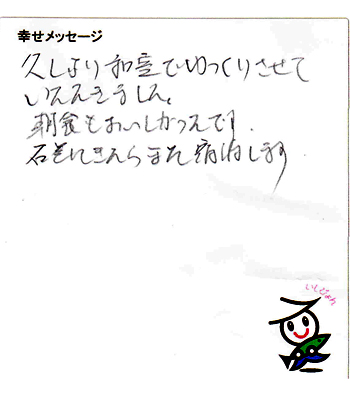 幸せメッセージ
久しぶり和室でゆっくりさせて
いただきました。
朝食もおいしかったです.
石巻にきたらまた宿泊します
いしぴょん